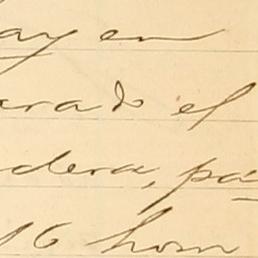 ay en
arado el
dera, pá
16 hom